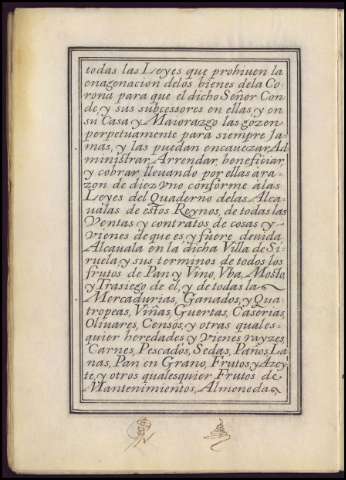 todas las Leyes que prohiuen la
enagenacion delos bienes dela Co-
rona para que el dicho Señor Con
de, y sus subcessores en ellas, y en
su Casa, y Maiorazgo las gozen
perpetuamente para siempre Ja-
mas, y las puedan encauezar Ad
ministrar, Arrendar, beneficiar
y cobrar, lleuando por ellas a ra-
zon de diez vno conforme alas
Leyes del Quaderno delas Alca-
ualas de estos Reynos, de todas las
Ventas y contratos de cosas y
vienes de que es y fuere deuida
Alcauala en la dicha Villa de Si-
ruela, y sus terminos de todos los
frutos de Pan y Vino, Vba, Mosto,
y Trasiego de el, y de todas la
Mercadurias, Ganados, y Qua
tropeas, Viñas, Guertas, Caserias,
Oliuares, Censos, y otras quales-
quier heredades y vienes rayzes,
Carnes, Pescados, Sedas, Paños, La
nas, Pan en Grano, Frutos, y Azey
te, y otros qualesquier Frutos de
Mantenimientos, Almonedas